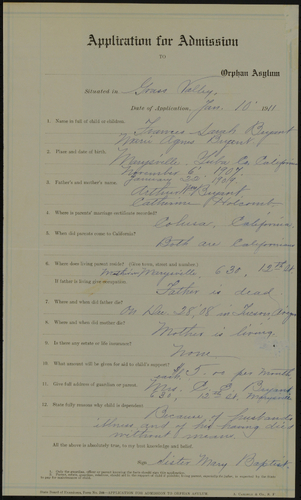 Application for Admission
TO
Orphan Asylum
Situated in Grass Valley
Date of Application, Jan 10 1911
1. Name in full of child or children.
Frances Sarah Bryant
Marie Agnes Bryant
2. Place and date of birth?
Marysville, Yuba Co. California
November 6, 1907
January 22, 1906
3. Father's and mother's name.
Arthur Bryant
Catherine Holcomb
4. Where is parents' marriage certificate recorded?
Colusa, California
5. When did parents come to California?
Both are Californians
6. Where does living parent reside? (Give town, street and number)
Mother Marysville, 630, 12th St.
If father is living give occupation.
Father is dead
7. Where and when did father die?
On Dec. 28 '08
8. Where and when did mother die?
Mother is living
9. Is there any estate or life insurance?
None
10. What amount will be given for aid to child's support?
per month
11. Give full address of guardian or parent.
Mrs. Bryant
630, 12th St. Marysville
12. State fully reasons why child is dependent.
Because of husband's
illness and of his having died
without means.
All the above is absolutely true, to my best knowledge and belief.
Sister Mary Baptist